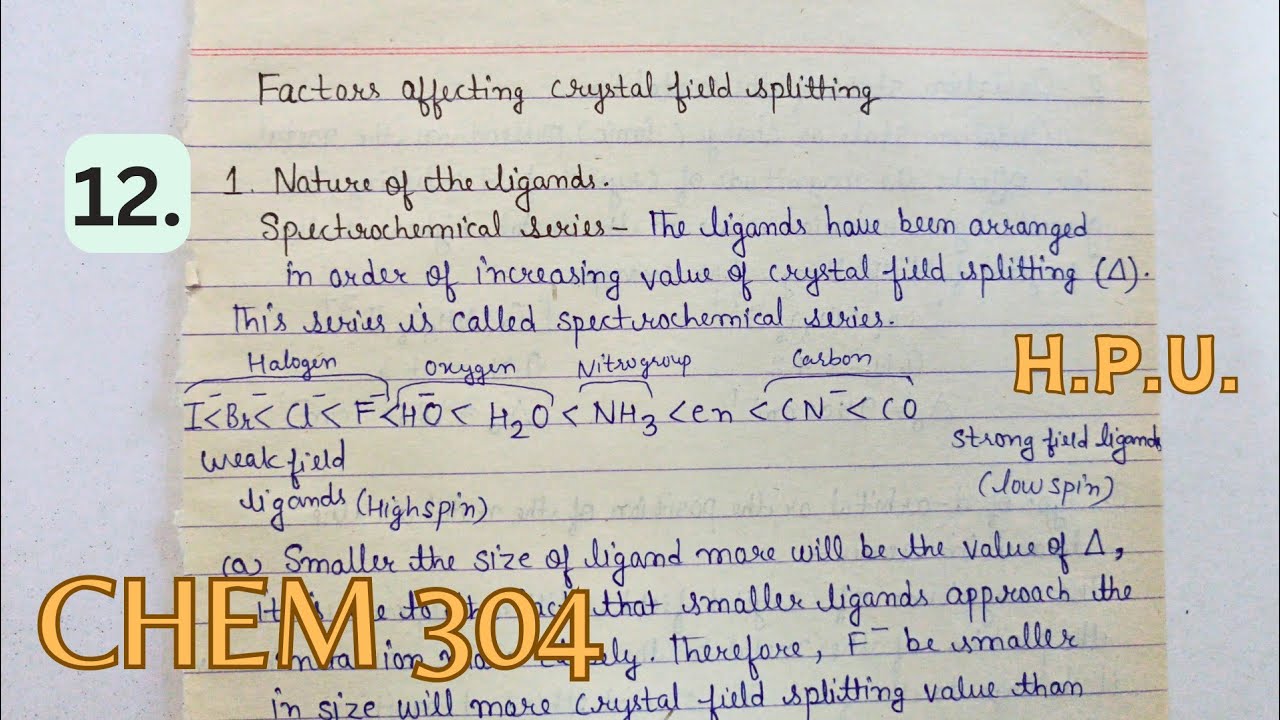 Factors affecting crystal field splitting
12.
1. Nature of the ligands.
Spectrochemical series – The ligands have been arranged
in order of increasing value of crystal field splitting (Δ).
This series is called spectrochemical series.
H.P.U.
Halogen Oxygen Nitrogroup Carbon
I⁻<Br⁻< Cl⁻< F⁻<HO⁻< H₂O < NH₃ <en < CN⁻ < CO
weak field strong field ligands
ligands (High spin) (low spin)
(a) Smaller the size of ligand more will be the value of Δ,
CHEM 304
that smaller ligands approach the
Therefore, F⁻ be smaller
in size will more crystal field splitting value than